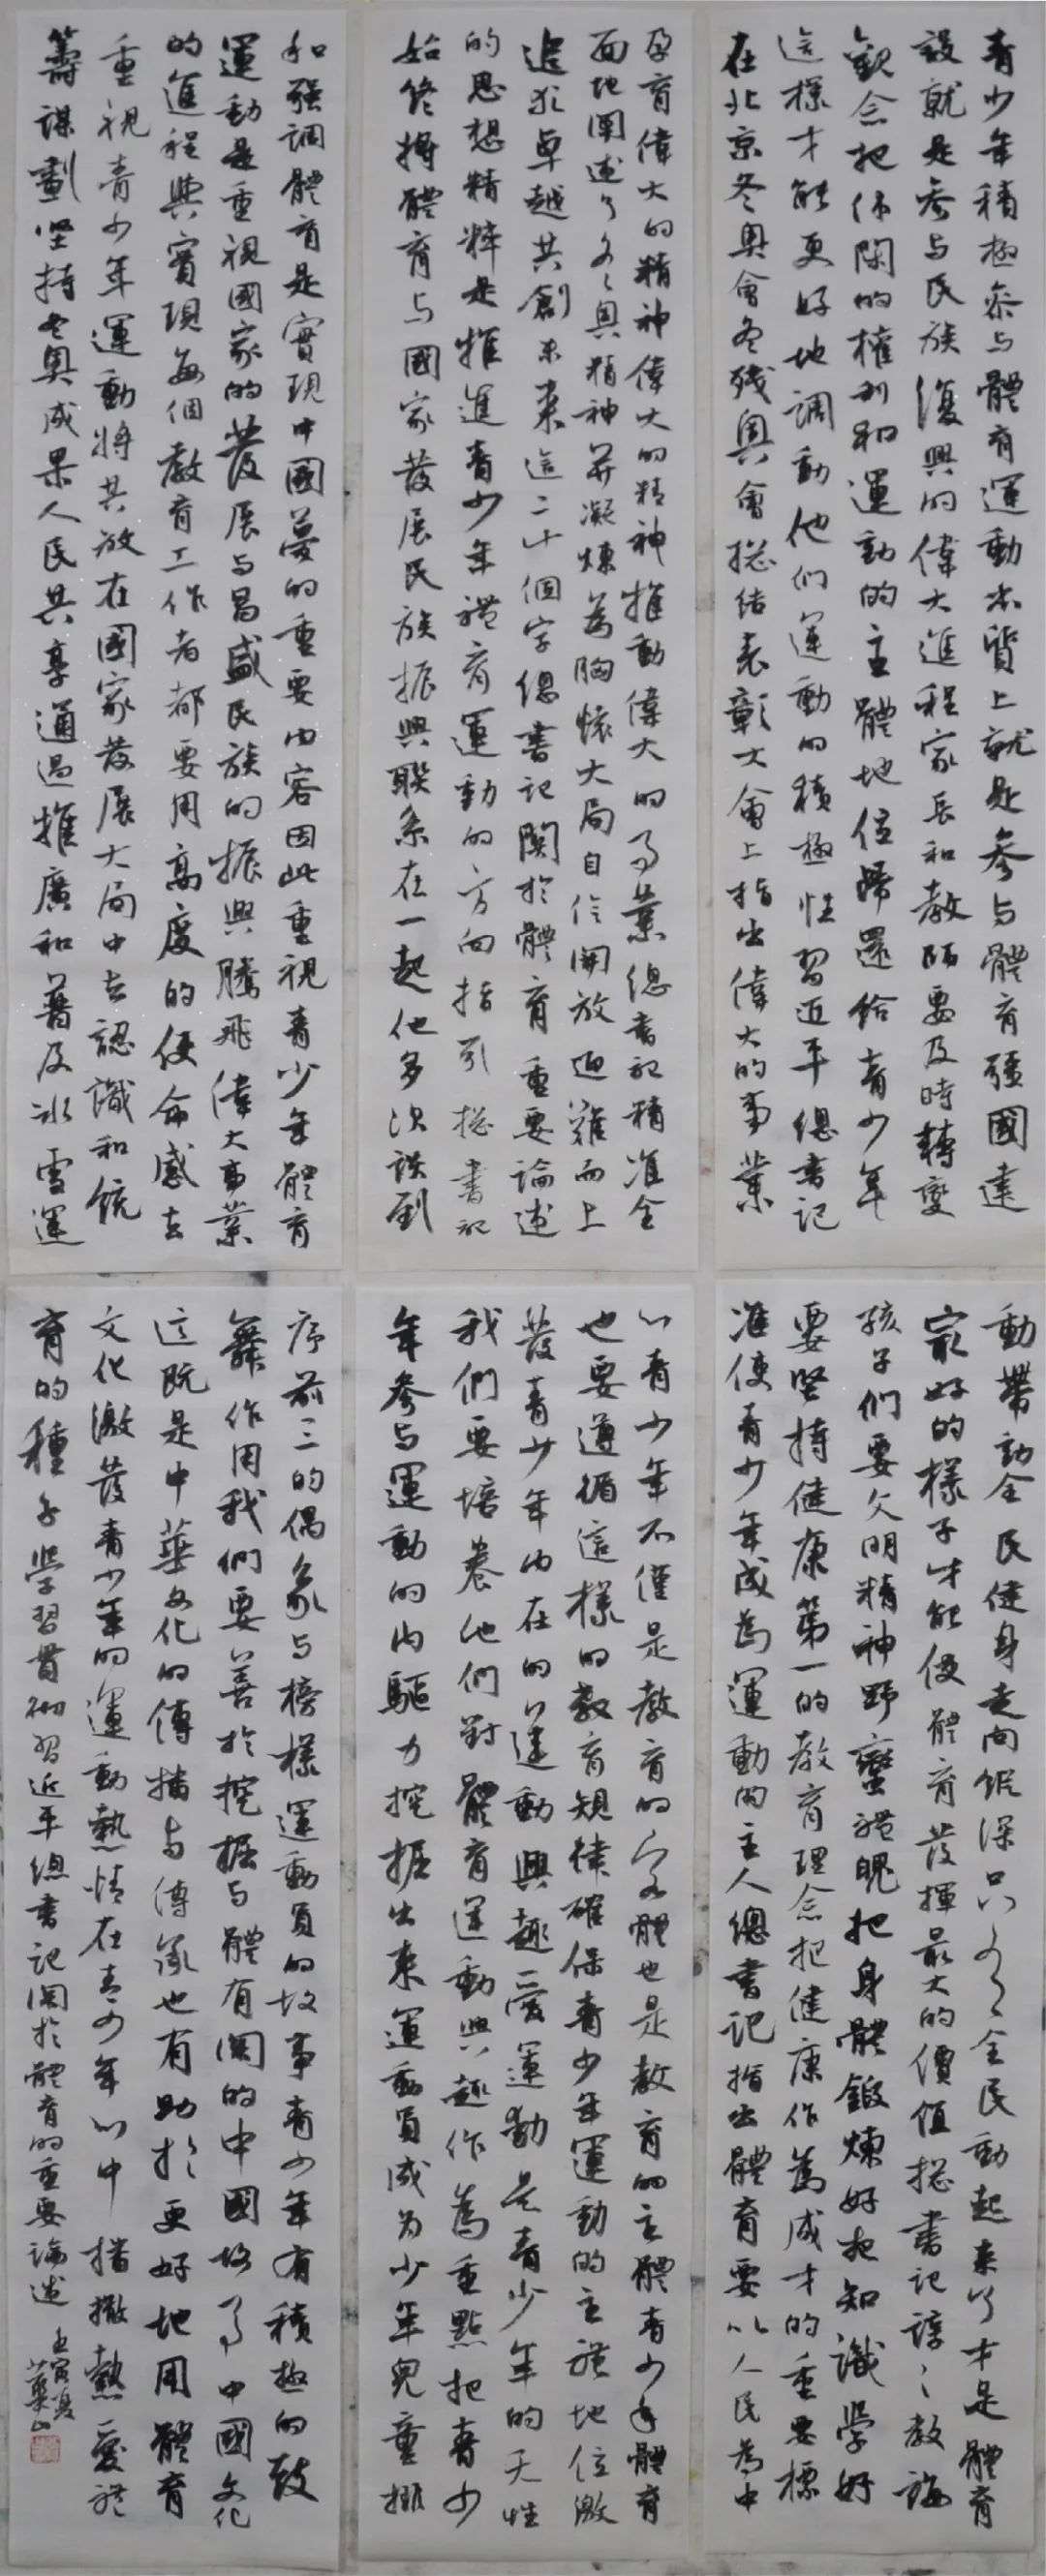 青少年積極參与體育運動本質上就是參与體育強國建
設就是參与民族復興的偉大進程家長和教師要及時轉變
觀念把休閑的權利和運動的主體地位歸還給青少年
這樣才能更好地調動他們運動的積極性習近平總書記
在北京冬奧會冬殘奧會總結表彰大會上指出偉大的事業
孕育偉大的精神偉大的精神推動偉大的事業總書記精准全
面地闡述了冬奧精神并凝煉為胸懷大局自信開放迎難而上
追求卓越共創未來這二十個字總書記関於體育重要論述
的思想精粹是推進青少年體育運動的方向指引總書記
始終將體育与國家發展民族振興聯系在一起他多次談到
和强調體育是實現中國夢的重要内容因此重視青少年體育
運動是重視國家的發展与昌盛民族的振興騰飛偉大事業
的進程與實現每個教育工作者都要用高度的使命感去
重視青少年運動將其放在國家發展大局中去認識和統
籌謀劃坚持冬奧成果人民共享通過推廣和普及冰雪運
動帶動全民健身走向縱深只有全民動起來了才是體育
最好的樣子才能使體育發揮最大的價值總書記諄々教誨
孩子們要文明精神野蠻體魄把身體鍛煉好把知識學好
要坚持健康第一的教育理念把健康作為成才的重要標
准使青少年成為運動的主人總書記指出體育要以人民為中
心青少年不僅是教育的客體也是教育的主體青少年體育
也要遵循這樣的教育規律確保青少年運動的主體地位激
發青少年内在的運動興趣愛運動是青少年的天性
我們要培養他們對體育運動興趣作為重點把青少
年參与運動的内驅力挖掘出來運動員成为少年兒童排
序前三的偶象与榜樣運動員的故事青少年有積極的鼓
舞作用我們要善於挖掘与體育関的中國故事中國文化
這既是中華文化的傳播与傳承也有助於更好地用體育
文化激發青少年的運動熱情在青少年心中播撒熱愛體
育的種子學習貫徹習近平總書記関於體育的重要論述